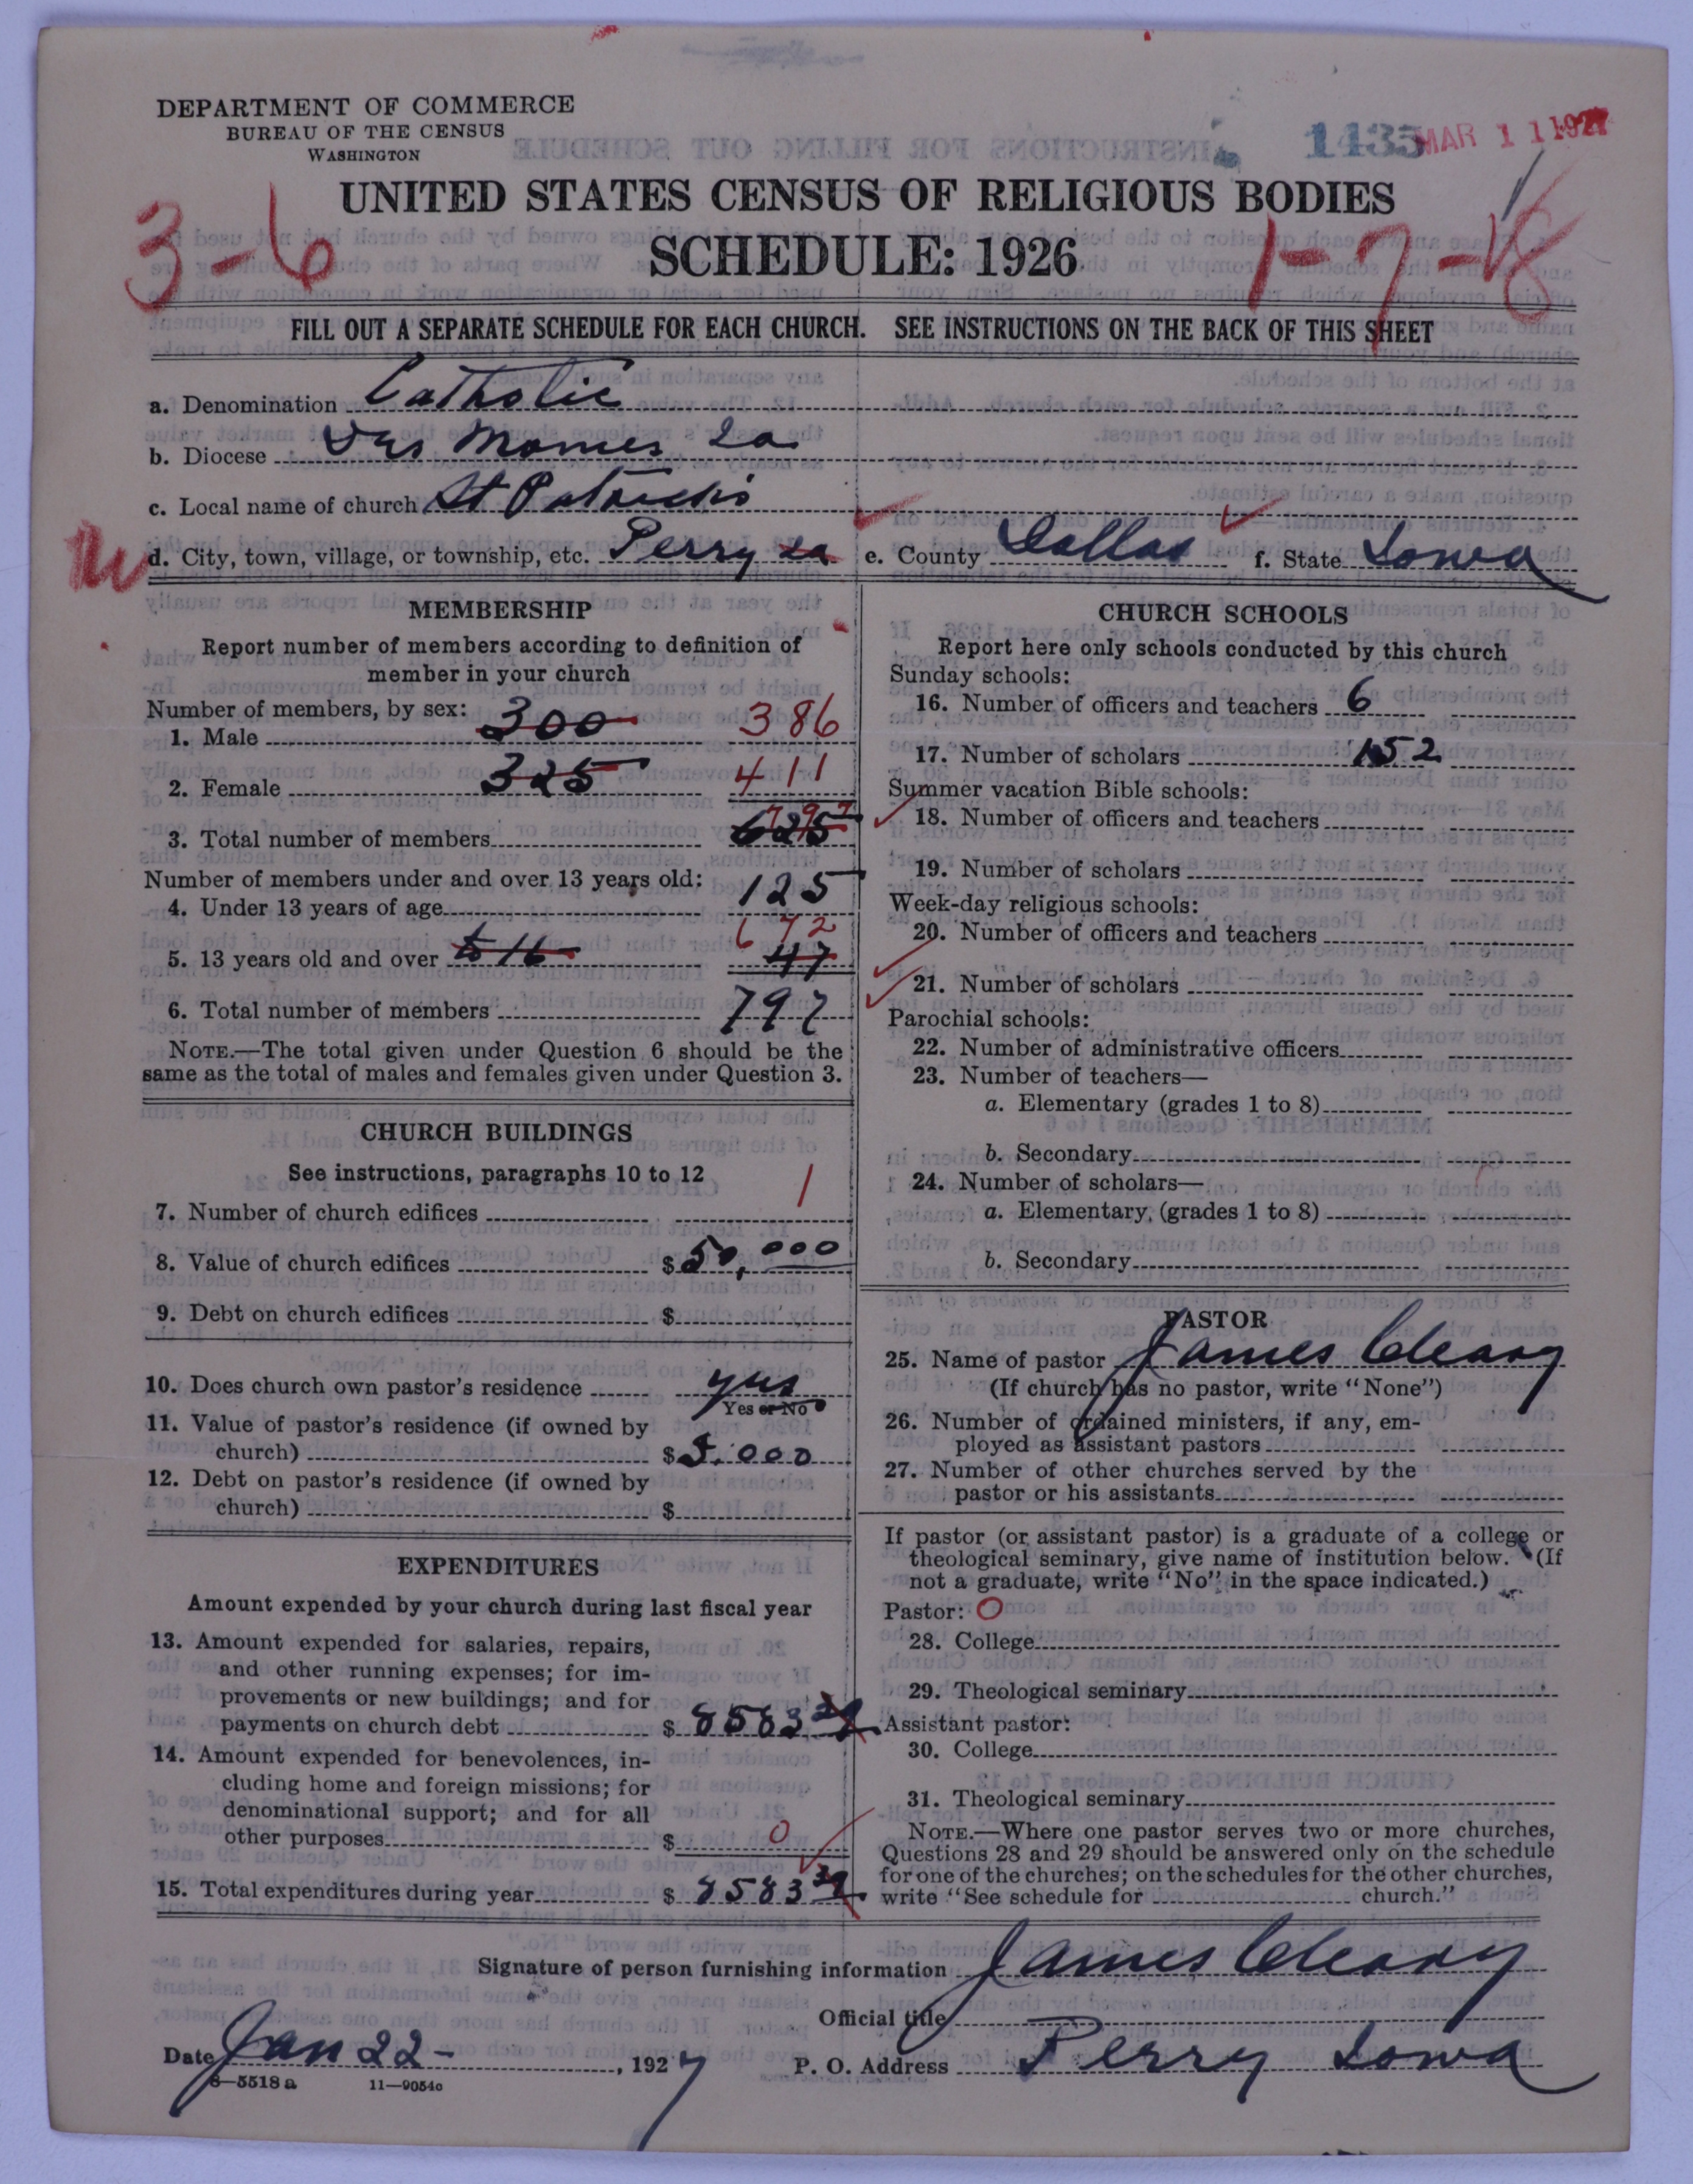 DEPARTMENT OF COMMERCE
BUREAU OF THE CENSUS
WASHINGTON
1435 MAR 11 1927
UNITED STATES CENSUS OF RELIGIOUS BODIES
SCHEDULE: 1926
3-6
1-7-18
FILL OUT A SEPARATE SCHEDULE FOR EACH CHURCH. SEE INSTRUCTIONS ON THE BACK OF THIS SHEET
a. Denomination Catholic
b. Diocese Des Moines Ia
c. Local name of church St Patricks
d. City, town, village, or township, etc. Perry Ia e. County Dallas f. State Iowa
MEMBERSHIP
Report number of members according to definition of
member in your church
Number of members, by sex:
1. Male 300 386
2. Female 325 411
3. Total number of members 625 797
Number of members under and over 13 years old:
4. Under 13 years of age 125
5. 13 years old and over 672 47
6. Total number of members 797
NOTE.—The total given under Question 6 should be the
same as the total of males and females given under Question 3.
CHURCH BUILDINGS
See instructions, paragraphs 10 to 12
7. Number of church edifices 1
8. Value of church edifices $ 50,000
9. Debt on church edifices $
10. Does church own pastor's residence yes
Yes or No
11. Value of pastor's residence (if owned by
church) $ 5.000
12. Debt on pastor's residence (if owned by
church) $
EXPENDITURES
Amount expended by your church during last fiscal year
13. Amount expended for salaries, repairs,
and other running expenses; for im-
provements or new buildings; and for
payments on church debt $ 8583 39
14. Amount expended for benevolences, in-
cluding home and foreign missions; for
denominational support; and for all
other purposes $ 0
15. Total expenditures during year $ 8583 39
CHURCH SCHOOLS
Report here only schools conducted by this church
Sunday schools:
16. Number of officers and teachers 6
17. Number of scholars 152
Summer vacation Bible schools:
18. Number of officers and teachers
19. Number of scholars
Week-day religious schools:
20. Number of officers and teachers
21. Number of scholars
Parochial schools:
22. Number of administrative officers
23. Number of teachers—
a. Elementary (grades 1 to 8)
b. Secondary
24. Number of scholars—
a. Elementary (grades 1 to 8)
b. Secondary
PASTOR
25. Name of pastor James Cleary
(If church has no pastor, write "None")
26. Number of ordained ministers, if any, em-
ployed as assistant pastors
27. Number of other churches served by the
pastor or his assistants
If pastor (or assistant pastor) is a graduate of a college or
theological seminary, give name of institution below. (If
not a graduate, write "No" in the space indicated.)
Pastor: O
28. College
29. Theological seminary
Assistant pastor:
30. College
31. Theological seminary
NOTE.—Where one pastor serves two or more churches,
Questions 28 and 29 should be answered only on the schedule
for one of the churches; on the schedules for the other churches,
write "See schedule for church."
Signature of person furnishing information James Cleary
Official title
Date Jan 22- , 1927 P. O. Address Perry Iowa
8-5518 a 11-9054c